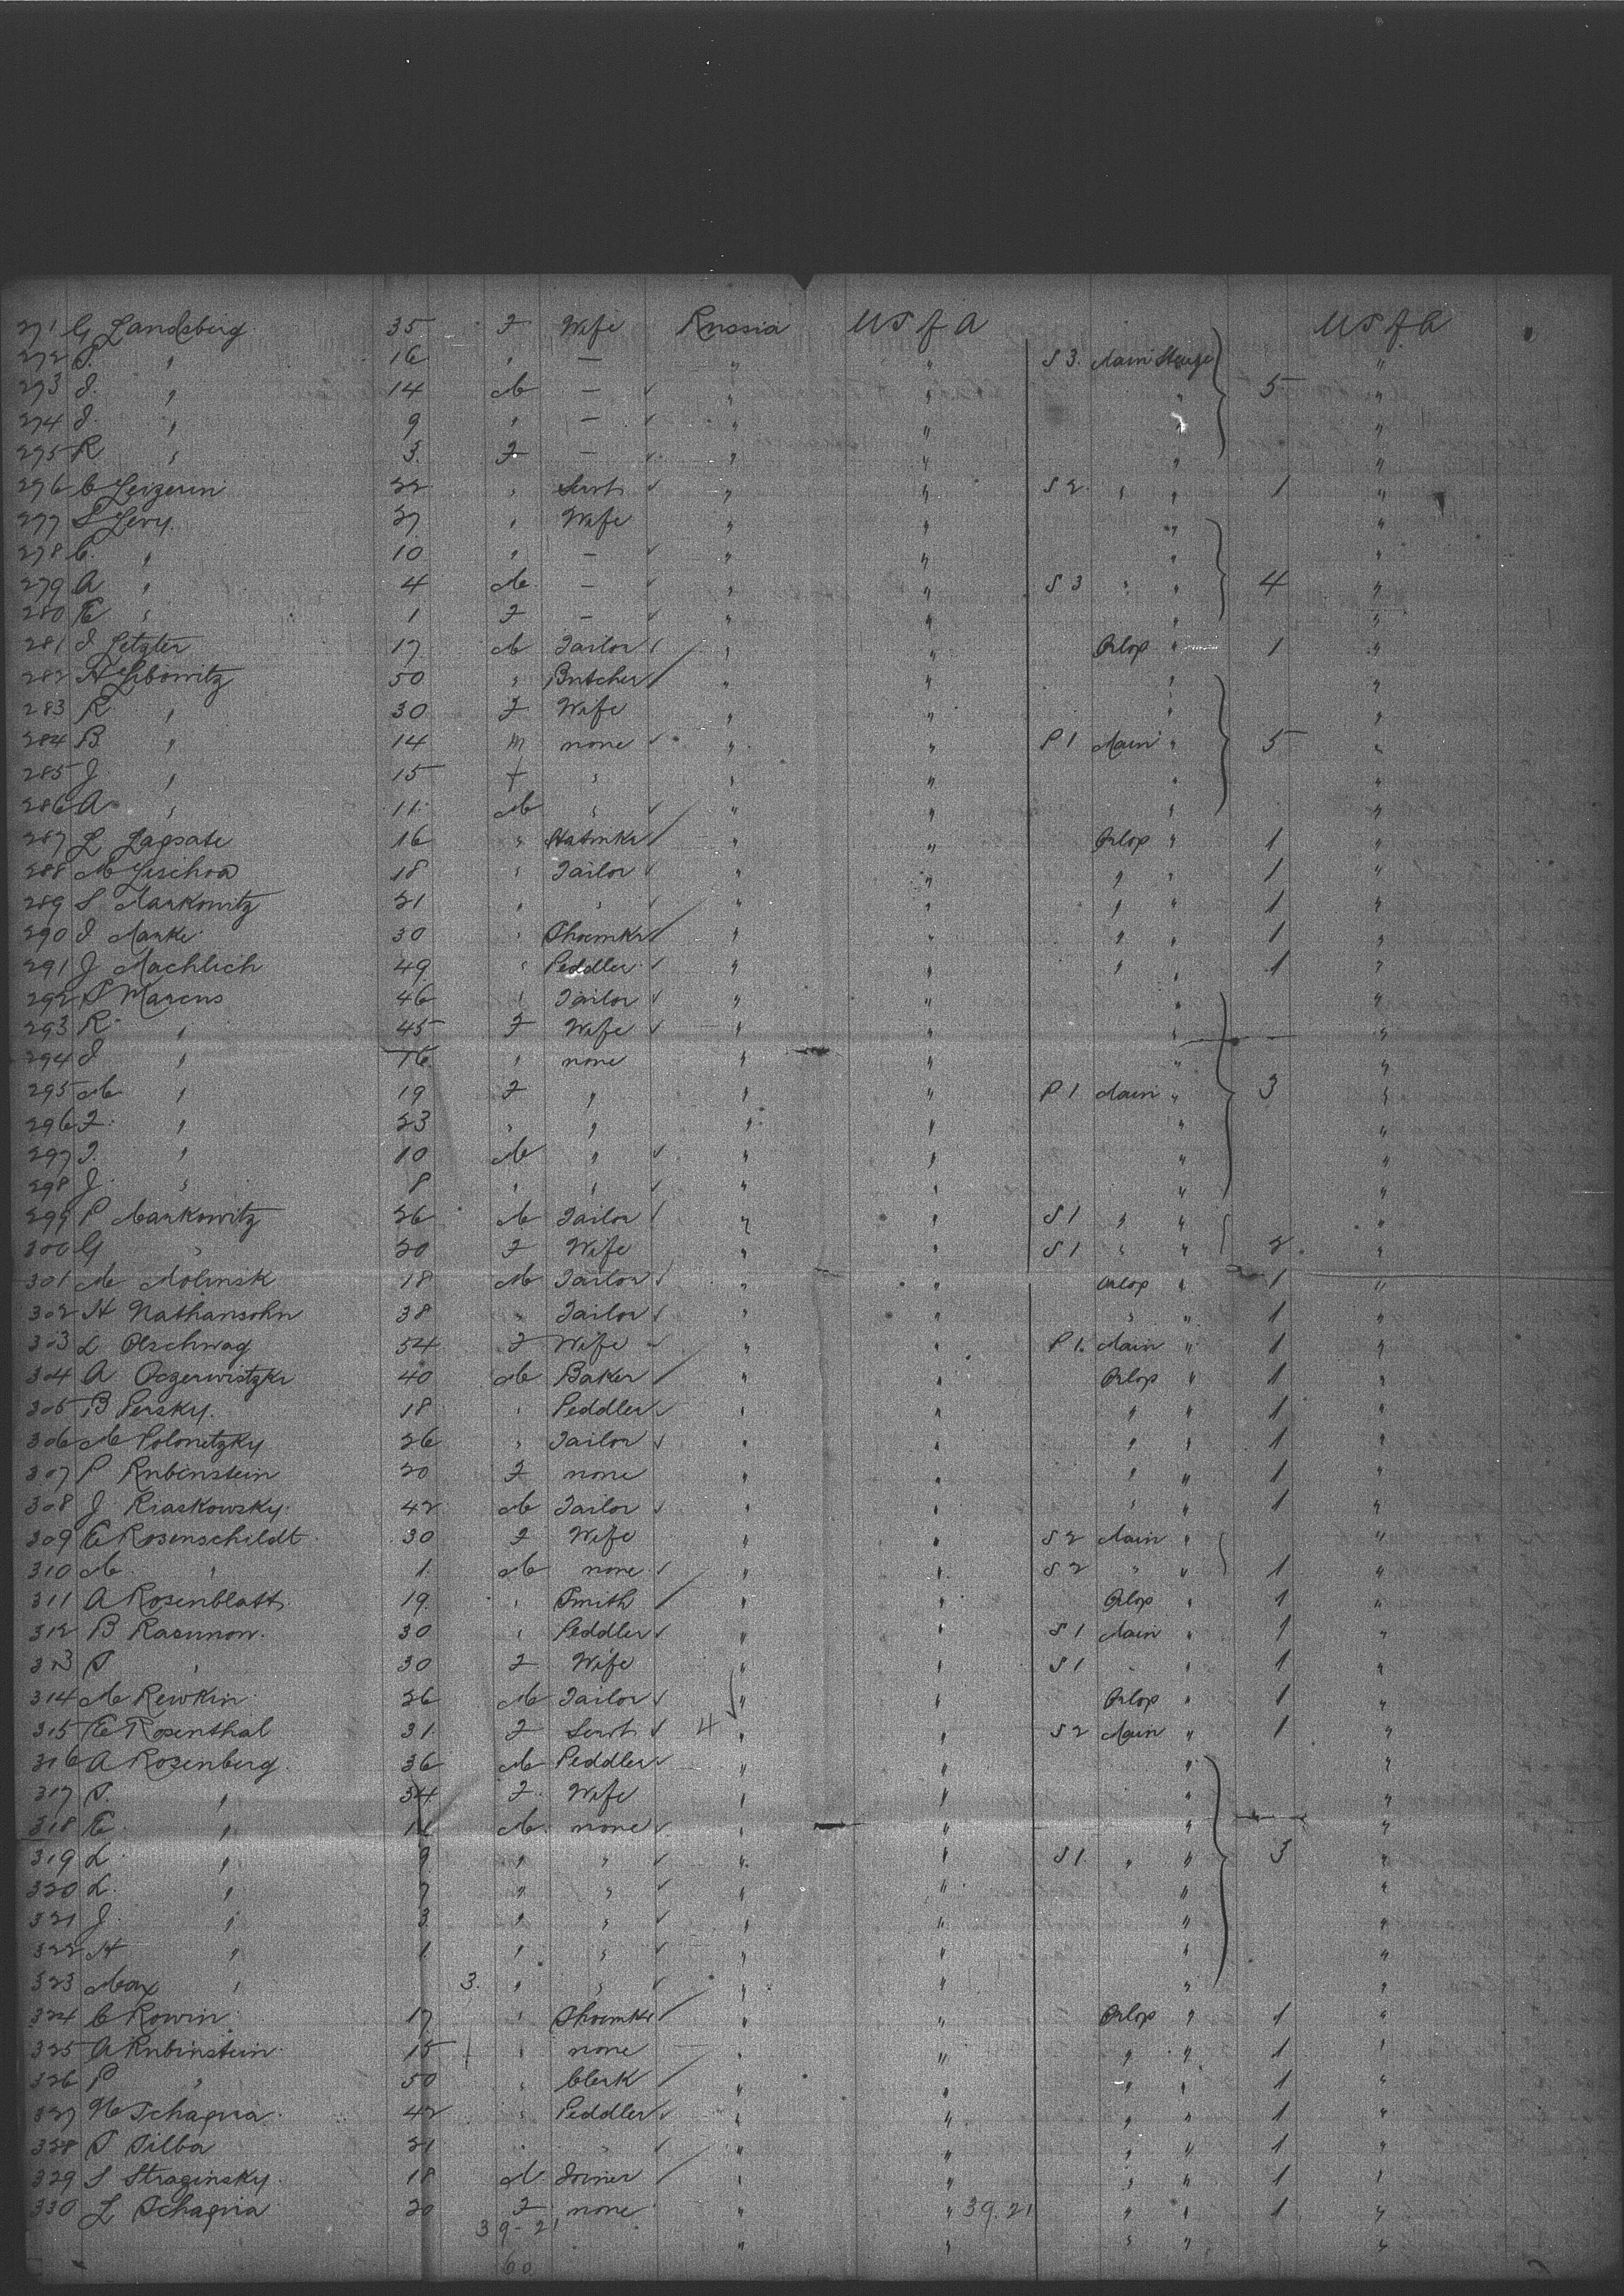 271 G Landsberg 35 F Wife Russia US of A US of A
272 S. " 16 " — " " S 3. Main Steerge "
273 I. " 14 M — ✓ " " " 5 "
274 I. " 9 " — ✓ " " " "
275 R " 3. F — ✓ " " " "
276 C Leizerin 22 " Servt ✓ " " S 2. " " 1 "
277 S Levy. 27 " Wife " " " "
278 C. " 10 " — ✓ " " " "
279 A " 4 M — ✓ " " S 3 " " 4 "
280 E " 1 F — ✓ " " " "
281 I Letzter 17 M Tailor ✓ " " Orlop " 1 "
282 H Libowitz 50 " Butcher / " " " "
283 R " 30 F Wife " " " "
284 B " 14 m none ✓ " " P 1 Main " 5 "
285 J " 15 f " " " " "
286 A " 11. M " ✓ " " " "
287 L Lapsate 16 " Hatmkr / " " Orlop " 1 "
288 M 18 " Tailor ✓ " " " " 1 "
289 S Markowitz 21 " " ✓ " " " " 1 "
290 I Marke 30 " Shoemkr / " " " " 1 "
291 J Machlich 49 " Peddler ✓ " " " " 1 "
292 S Marcus 46 " Tailor ✓ " " " "
293 R " 45 F Wife ✓ " " " "
294 I " 16 " none " " " "
295 M " 19 F " " " P 1 Main " 3 "
296 F. " 23 " " " " " "
297 I. " 10 M " ✓ " " " "
298 J. " 8 " " ✓ " " " "
299 P Markowitz 26 M Tailor ✓ " " S 1 " " "
300 G " 20 F Wife " " S 1 " " 2. "
301 M Molinsk 18 M Tailor ✓ " " Orlop " 1 "
302 H Nathansohn 38 " Tailor ✓ " " " " 1 "
303 L Olschwag 54 F Wife ✓ " " P 1. Main " 1 "
304 A 40 M Baker / " " Orlop " 1 "
305 B Persky. 18 " Peddler ✓ " " " " 1 "
306 M Polonetzky 26 " Tailor ✓ " " " " 1 "
307 P Rubinstein 20 F none " " " " 1 "
308 J Riaskowsky. 42 M Tailor ✓ " " " " 1 "
309 E Rosenschildt 30 F Wife " " S 2 Main " "
310 M " 1. M none ✓ " " S 2 " " 1 "
311 A Rosenblatt 19. " Smith / " " Orlop " 1 "
312 B Rasumon. 30 " Peddler ✓ " " S 1 Main " 1 "
313 S " 30 F Wife " " S 1 " " 1 "
314 M Rewkin 26 M Tailor ✓ " " Orlop " 1 "
315 E Rosenthal 31. F Servt ✓ 4 " " S 2 Main " 1 "
316 A Rosenberg 36 M Peddler ✓ " " " "
317 S. " 34 F. Wife " " " "
318 E. " 11 M none ✓ " " " "
319 L " 9 " " ✓ " " S 1. " " 3 "
320 L. " 7 " " ✓ " " " "
321 J. " 3 " " ✓ " " " "
322 H " 1. " " ✓ " " " "
323 Max " 3. " " ✓ " " "
324 C Rowin 17 " Shoemkr / " " Orlop " 1 "
325 A Rubinstein 15 " none " " " " 1 "
326 P " 50 " Clerk / " " " " 1 "
327 42 " Peddler ✓ " " " " 1 "
328 S Silba 21 " " ✓ " " " " 1 "
329 S Straginsky. 18 M Joiner / " " " " 1 "
330 L 20 F none " " 39.21 " " 1 "
39-21 " " " " "
60